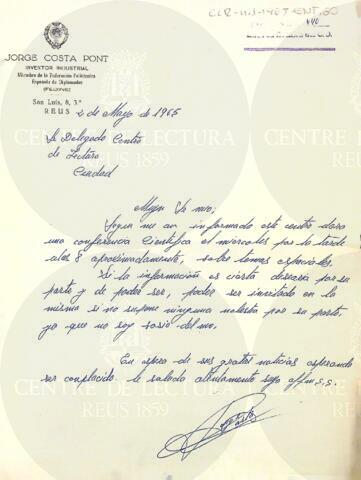 JORGE COSTA PONT
INVENTOR INDUSTRIAL
Miembro de la Federación Politécnica
Española de Diplomados
San Luis, 8, 3.º
REUS
2 de Mayo de 1965
Sr Delegado Centro
de Lectura
Ciudad
Muy Sr mio;
Segun me an informado este centro dara
una conferencia cientifica el miercoles por la tarde
alas 8 aproximadamente, sobre temas espaciales.
Si la información es cierta desearia por su
parte y de poder ser, poder ser invitado en la
misma si no supone ninguna molestia por su parte,
ya que no soy socio del mo.
En espera de sus gratas noticias esperando
ser conplacido le saluda atentamente suyo affmo. s.s.
CENTRE DE LECTURA
REUS 1859